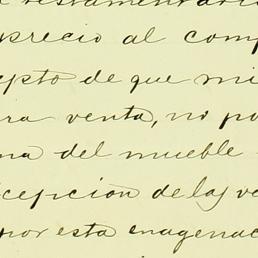 a testamentaria
precio al comp
epto de que mi
ra venta, no po
na del mueble
cepcion de las ve
por esta enagenac